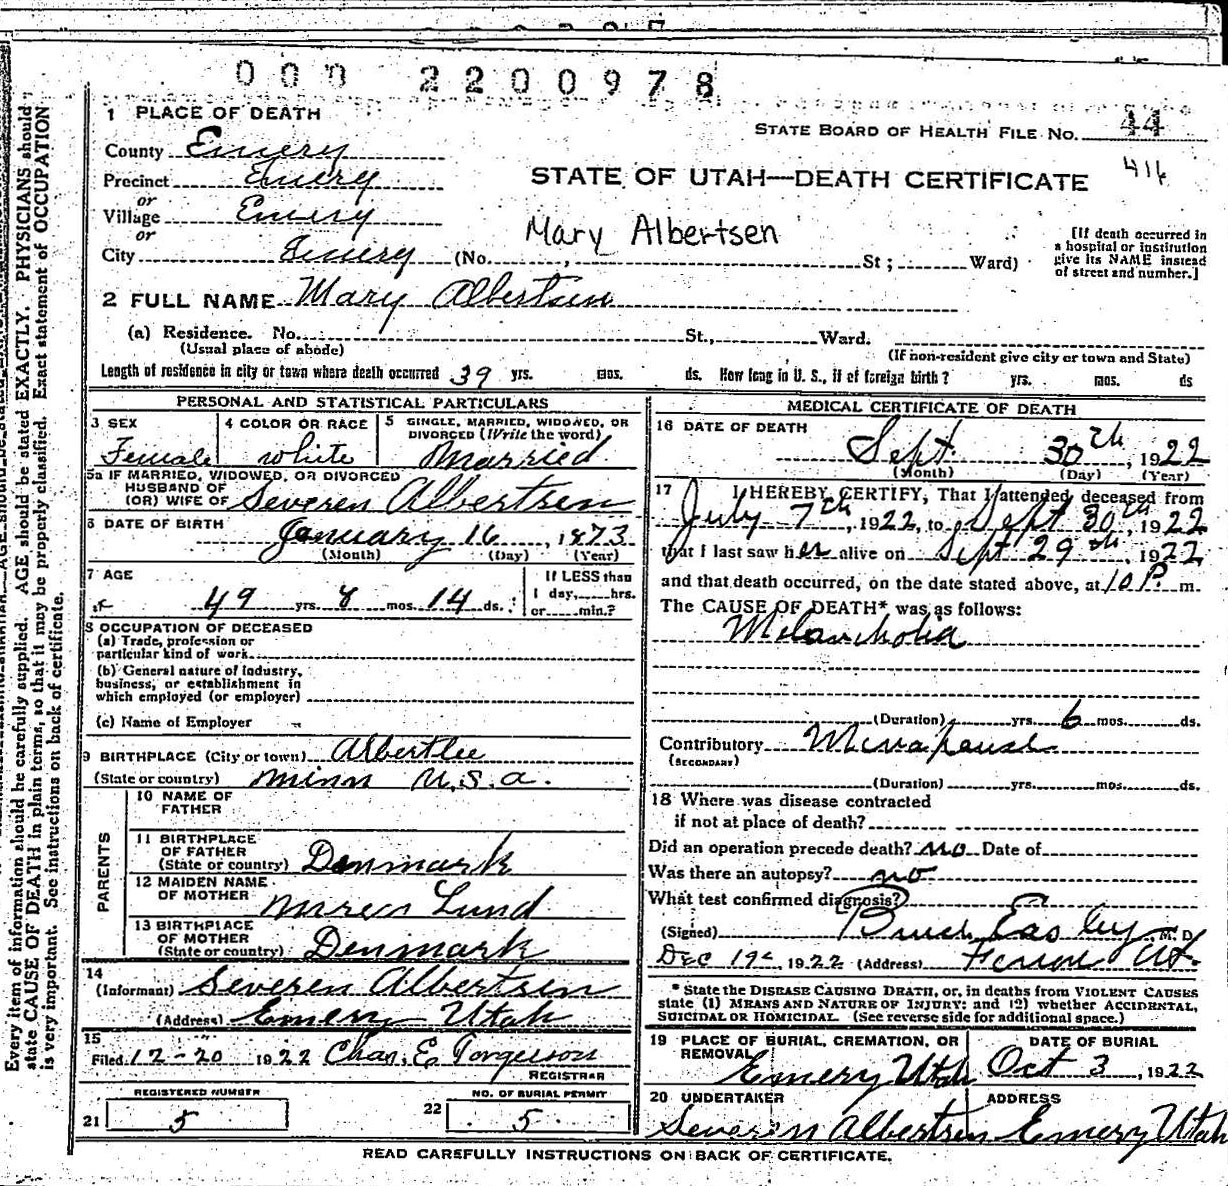 000 2200978
1 PLACE OF DEATH
STATE BOARD OF HEALTH FILE NO. 44
County Emery
416
Precinct Emery
STATE OF UTAH—DEATH CERTIFICATE
or
Village Emery
or
Mary Albertsen
City Emery (No. , St; Ward)
[If death occurred in
a hospital or institution
give its NAME instead
of street and number.]
2 FULL NAME Mary Albertsen
(a) Residence. No. St., Ward.
(Usual place of abode)
(If non-resident give city or town and State)
Length of residence in city or town where death occurred 39 yrs. mos. ds. How long in U. S., if of foreign birth? yrs. mos. ds
PERSONAL AND STATISTICAL PARTICULARS
3 SEX
Female
4 COLOR OR RACE
white
5 SINGLE, MARRIED, WIDOWED, OR
DIVORCED (Write the word)
Married
5a IF MARRIED, WIDOWED, OR DIVORCED
HUSBAND OF
(OR) WIFE OF Severen Albertsen
6 DATE OF BIRTH
January 16, 1873
(Month) (Day) (Year)
7 AGE
49 yrs. 8 mos. 14 ds.
If LESS than
1 day, hrs.
or min.?
8 OCCUPATION OF DECEASED
(a) Trade, profession or
particular kind of work
(b) General nature of industry,
business, or establishment in
which employed (or employer)
(c) Name of Employer
9 BIRTHPLACE (City or town) Albertlee
(State or country) Minn U.S.A.
PARENTS
10 NAME OF
FATHER
11 BIRTHPLACE
OF FATHER
(State or country) Denmark
12 MAIDEN NAME
OF MOTHER Lund
13 BIRTHPLACE
OF MOTHER
(State or country) Denmark
14
(Informant) Severen Albertsen
(Address) Emery Utah
15
Filed 12-20 1922 Chas. E. Torgerson
REGISTRAR
REGISTERED NUMBER
21 5
NO. OF BURIAL PERMIT
22 5
MEDICAL CERTIFICATE OF DEATH
16 DATE OF DEATH
Sept. 30th, 1922
(Month) (Day) (Year)
17 I HEREBY CERTIFY, That I attended deceased from
July 7th, 1922, to Sept 30th, 1922
that I last saw her alive on Sept 29th, 1922
and that death occurred, on the date stated above, at 10 P. m.
The CAUSE OF DEATH* was as follows:
Melancholia
(Duration) yrs. 6 mos. ds.
Contributory Menapause
(SECONDARY)
(Duration) yrs. mos. ds.
18 Where was disease contracted
if not at place of death?
Did an operation precede death? no Date of
Was there an autopsy? no
What test confirmed diagnosis?
(Signed) Bruce Easley, M. D.
Dec 19, 1922 (Address) Ferron Ut.
* State the DISEASE CAUSING DEATH, or, in deaths from VIOLENT CAUSES
state (1) MEANS AND NATURE OF INJURY; and (2) whether ACCIDENTAL,
SUICIDAL OR HOMICIDAL. (See reverse side for additional space.)
19 PLACE OF BURIAL, CREMATION, OR
REMOVAL
Emery Utah
DATE OF BURIAL
Oct 3, 1922
20 UNDERTAKER
Severen Albertsen
ADDRESS
Emery Utah
READ CAREFULLY INSTRUCTIONS ON BACK OF CERTIFICATE.
Every item of information should be carefully supplied. AGE should be stated EXACTLY. PHYSICIANS should
state CAUSE OF DEATH in plain terms, so that it may be properly classified. Exact statement of OCCUPATION
is very important. See instructions on back of certificate.